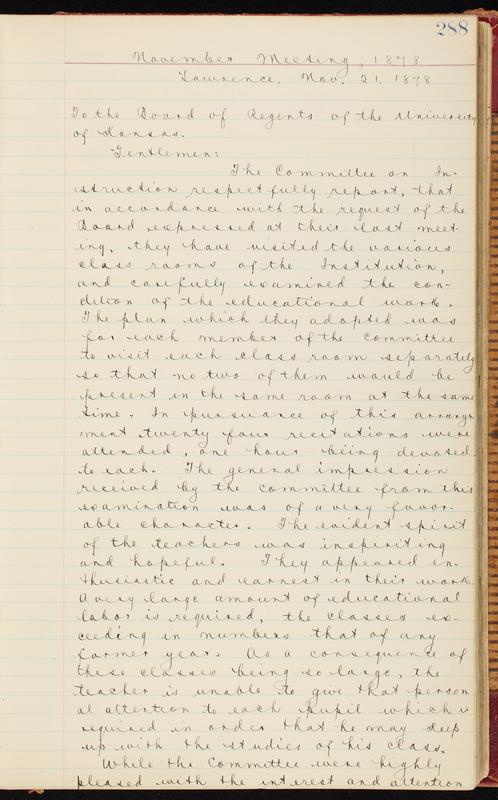 288
November Meeting, 1878
Lawrence. Nov. 21. 1878
To the Board of Regents of the University
of Kansas.
Gentlemen:
The Committee on In-
struction respectfully report, that
in accordance with the request of the
Board expressed at their last meet-
ing, they have visited the various
class rooms of the Institution,
and carefully examined the con-
dition of the educational work.
The plan which they adopted was
for each member of the committee
to visit each class room separately
so that no two of them would be
present in the same room at the same
time. In pursuance of this arrange
ment twenty four recitations were
attended, one hour being devoted
to each. The general impression
received by the committee from this
examination was of a very favor-
able character. The evident spirit
of the teachers was inspiriting
and hopeful. They appeared en-
thusiastic and earnest in their work.
A very large amount of educational
labor is required, the classes ex-
ceeding in numbers that of any
former year. As a consequence of
these classes being so large, the
teacher is unable to give that person
al attention to each pupil which is
required in order that he may keep
up with the studies of his class.
While the Committee were highly
pleased with the interest and attention